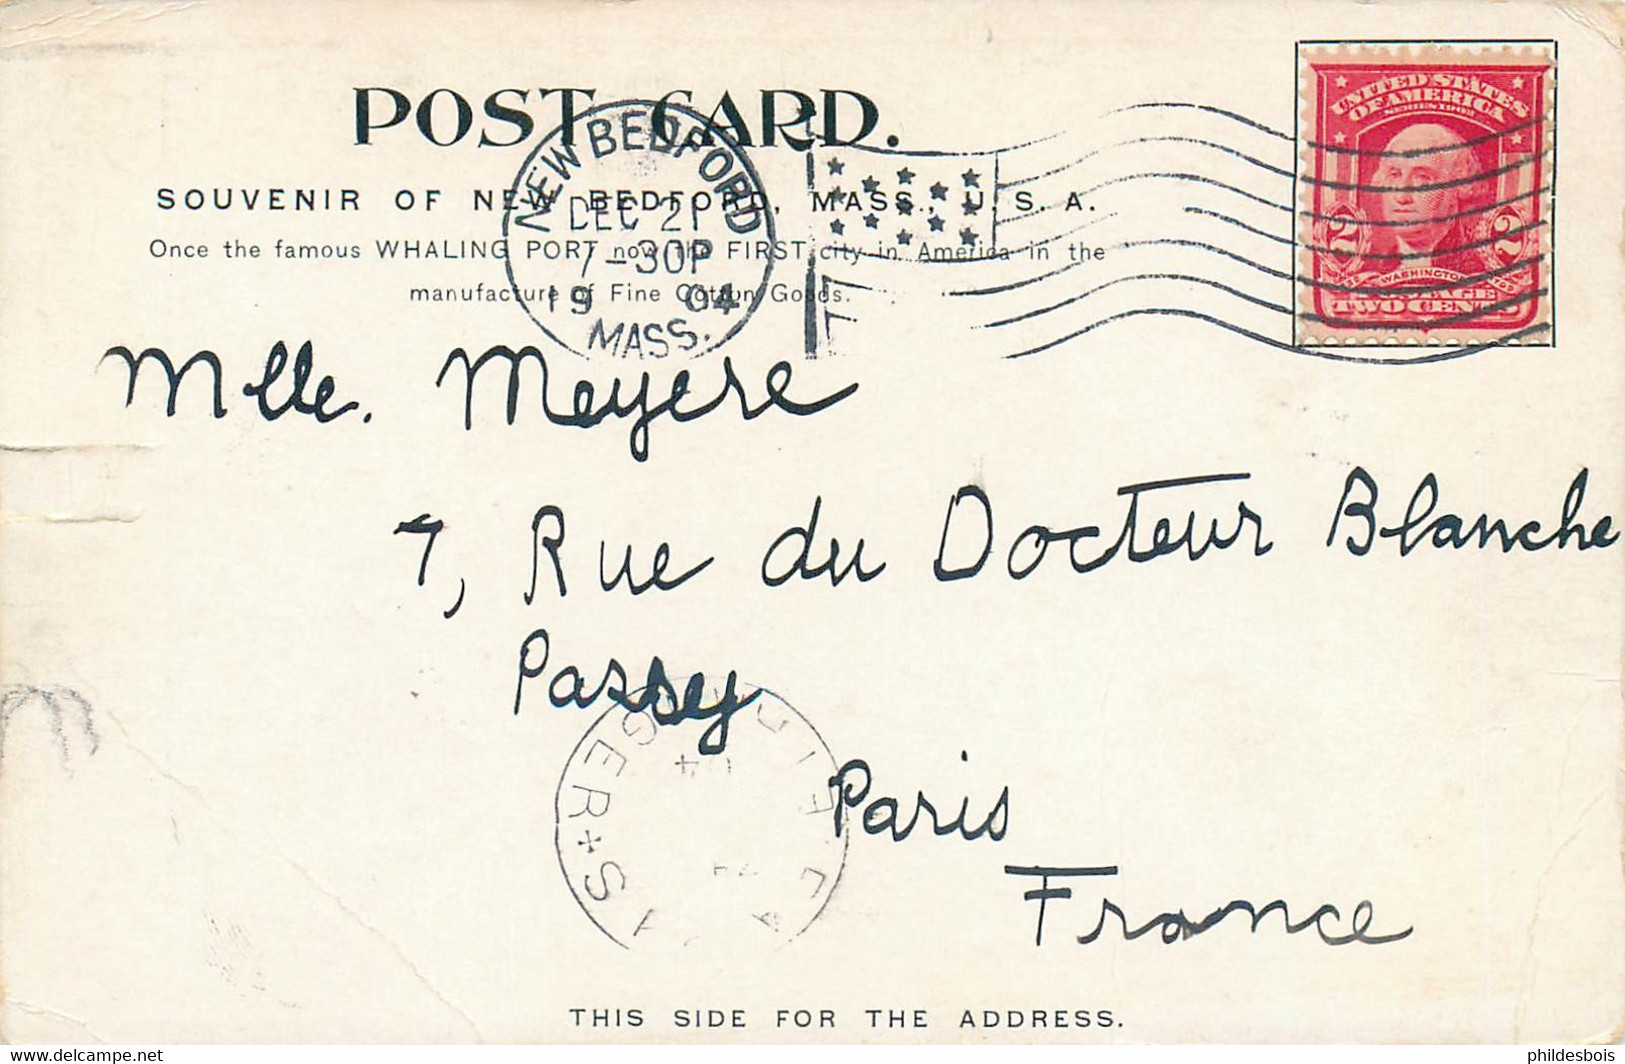 POST CARD.
SOUVENIR OF NEW BEDFORD, MASS., U.S.A.
Once the famous WHALING PORT now the FIRST city in America in the
manufacture of Fine Cotton Goods.
NEW BEDFORD
DEC 21
7-30P
1904
MASS.
UNITED STATES
OF AMERICA
SERIES 1902
2 2
WASHINGTON
POSTAGE
TWO CENTS
Mlle. Meyere
7, Rue du Docteur Blanche
Passy
Paris
France
THIS SIDE FOR THE ADDRESS.
https://www.delcampe.net
phildesbois